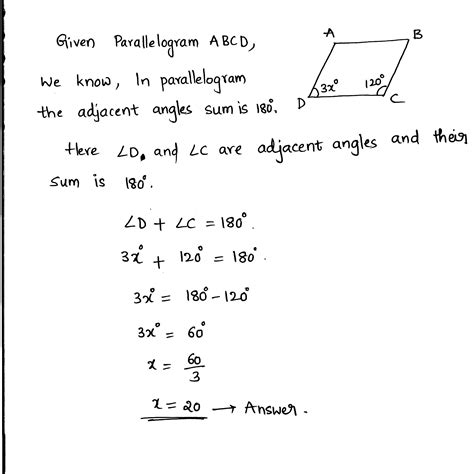 Given Parallelogram ABCD,
We know, In parallelogram
the adjacent angles sum is 180°.
A
B
3x°
120°
D
C
Here ∠D, and ∠C are adjacent angles and their
sum is 180°.
∠D + ∠C = 180°.
3x° + 120° = 180°.
3x° = 180° - 120°
3x° = 60°
x = 60/3
x = 20 → Answer.